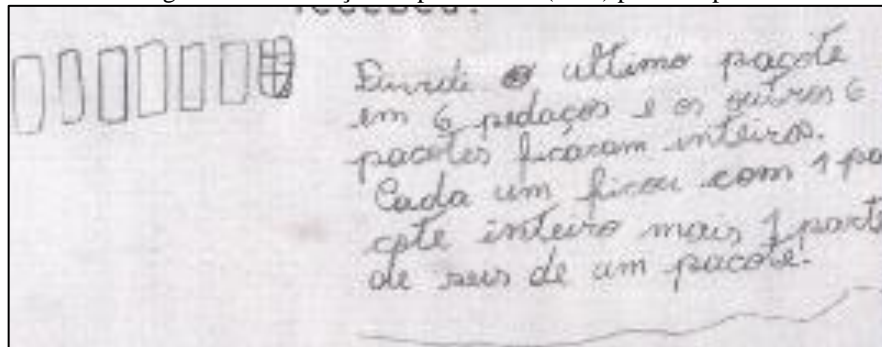 Dividi o ultimo pacote
em 6 pedaços e os outros 6
pacotes ficaram inteiros.
Cada um ficou com 1 pa
cote inteiro mais 1 parte
de seis de um pacote.